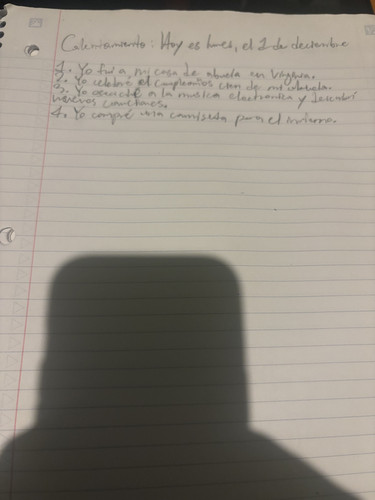 Calentamiento: Hoy es lunes, el 1 de deciembre
1. Yo fui a mi casa de abuela en Virginia.
2. Yo celebré el cumpleaños con de mi abuela.
3. Yo escuché a la musica electronica y descubrí
nuevos canciones.
4. Yo compré una camiseta para el invierno.